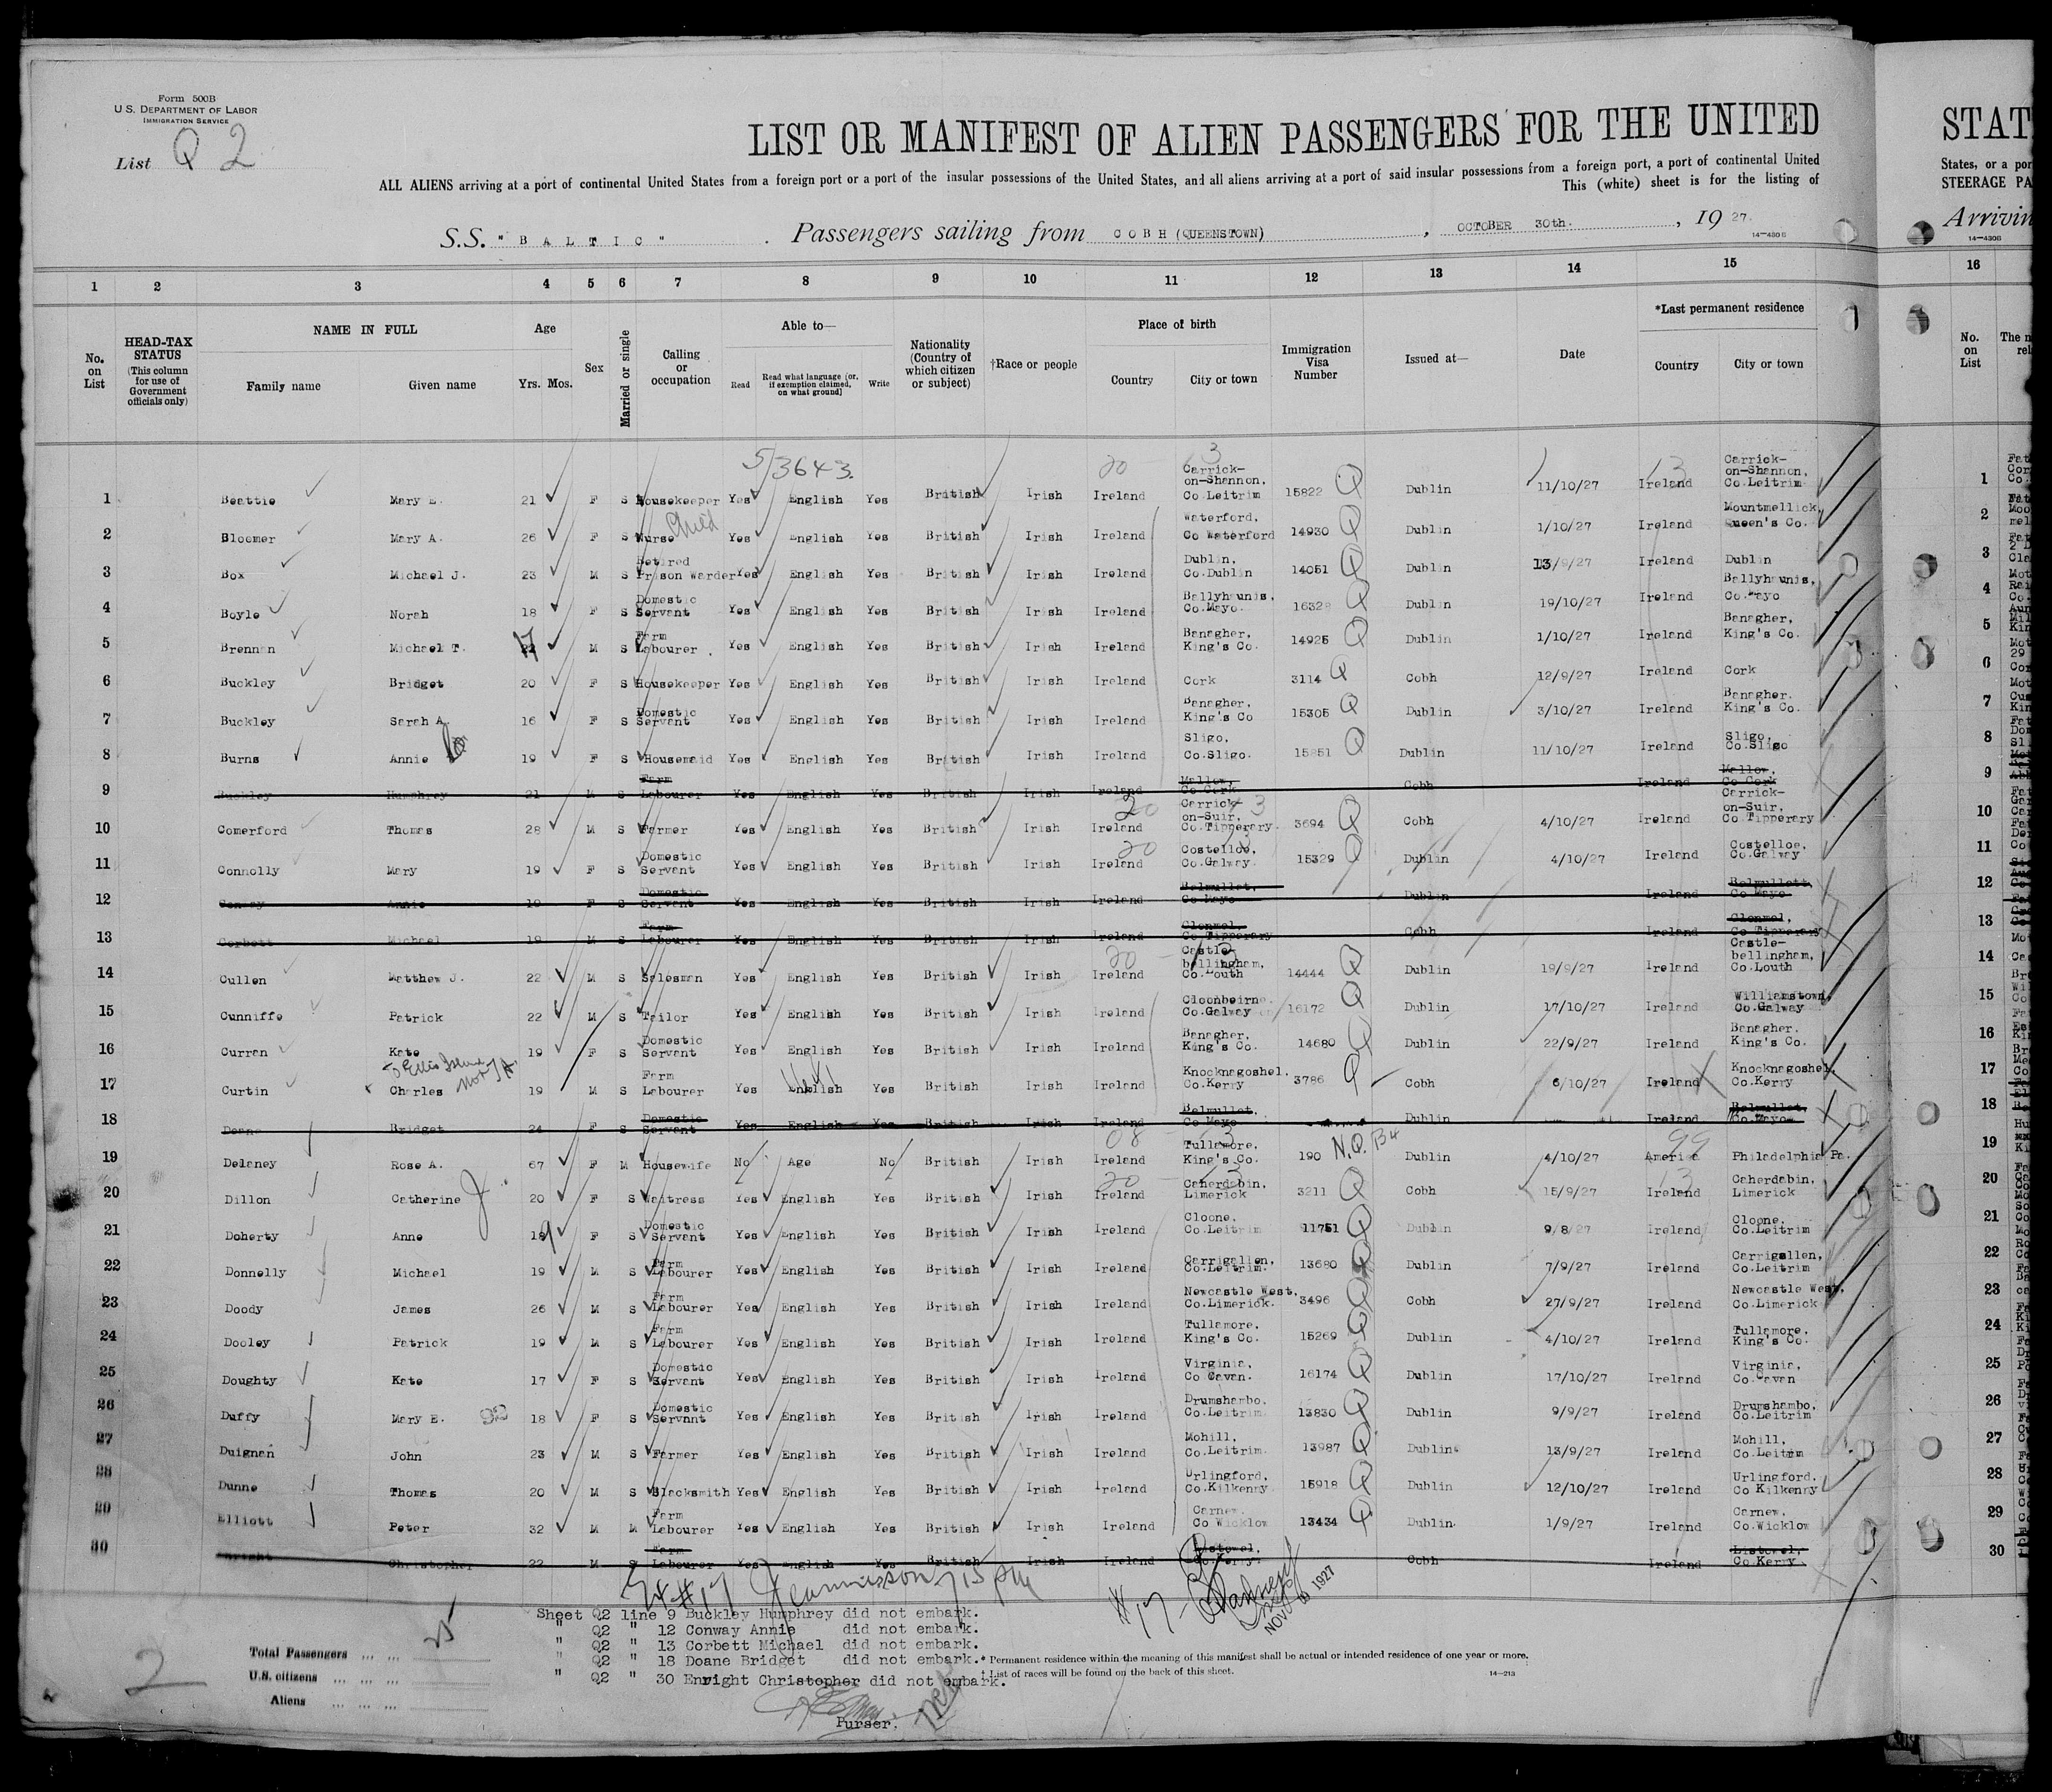 Form 500B
U.S. DEPARTMENT OF LABOR
IMMIGRATION SERVICE
List Q 2
LIST OR MANIFEST OF ALIEN PASSENGERS FOR THE UNITED
STAT
ALL ALIENS arriving at a port of continental United States from a foreign port or a port of the insular possessions of the United States, and all aliens arriving at a port of said insular possessions from a foreign port, a port of continental United
States, or a por
This (white) sheet is for the listing of
STEERAGE PA
S.S. "BALTIC" . Passengers sailing from COBH (QUEENSTOWN) , OCTOBER 30th. , 19 27.
Arrivin
14-430B
14-430B
1 2 3 4 5 6 7 8 9 10 11 12 13 14 15 16
No. on List
HEAD-TAX STATUS (This column for use of Government officials only)
NAME IN FULL
Family name Given name
Age
Yrs. Mos.
Sex
Married or single
Calling or occupation
Able to—
Read
Read what language [or, if exemption claimed, on what ground]
Write
Nationality (Country of which citizen or subject)
†Race or people
Place of birth
Country City or town
Immigration Visa Number
Issued at—
Date
*Last permanent residence
Country City or town
No. on List
5/3643.
1 Beattie Mary E. 21 F S Housekeeper Yes English Yes British Irish Ireland Carrick-on-Shannon, Co Leitrim 15822 Q Dublin 11/10/27 Ireland Carrick-on-Shannon, Co.Leitrim 1
2 Bloomer Mary A. 26 F S Nurse Child Yes English Yes British Irish Ireland Waterford, Co Waterford 14930 Q Dublin 1/10/27 Ireland Mountmellick, Queen's Co. 2
3 Box Michael J. 23 M S Retired Prison Warder Yes English Yes British Irish Ireland Dublin, Co.Dublin 14051 Q Dublin 13/9/27 Ireland Dublin 3
4 Boyle Norah 18 F S Domestic Servant Yes English Yes British Irish Ireland Ballyhaunis, Co.Mayo. 16328 Q Dublin 19/10/27 Ireland Ballyhaunis, Co.Mayo 4
5 Brennan Michael T. 17 M S Farm Labourer Yes English Yes British Irish Ireland Banagher, King's Co. 14925 Q Dublin 1/10/27 Ireland Banagher, King's Co. 5
6 Buckley Bridget 20 F S Housekeeper Yes English Yes British Irish Ireland Cork 3114 Q Cobh 12/9/27 Ireland Cork 6
7 Buckley Sarah A. 16 F S Domestic Servant Yes English Yes British Irish Ireland Banagher, King's Co 15305 Q Dublin 3/10/27 Ireland Banagher. King's Co. 7
8 Burns Annie 19 F S Housemaid Yes English Yes British Irish Ireland Sligo, Co.Sligo. 15851 Q Dublin 11/10/27 Ireland Sligo, Co.Sligo 8
9 Buckley Humphrey 21 M S Farm Labourer Yes English Yes British Irish Ireland Mallow, Co Cork Cobh Ireland Mallow, Co Cork 9
10 Comerford Thomas 28 M S Farmer Yes English Yes British Irish Ireland Carrick-on-Suir, Co.Tipperary. 3694 Q Cobh 4/10/27 Ireland Carrick-on-Suir, Co Tipperary 10
11 Connolly Mary 19 F S Domestic Servant Yes English Yes British Irish Ireland Costelloe, Co.Galway. 15329 Q Dublin 4/10/27 Ireland Costelloe, Co.Galway 11
12 Conway Annie 19 F S Domestic Servant Yes English Yes British Irish Ireland Belmullet, Co Mayo Dublin Ireland Belmullett, Co Mayo 12
13 Corbett Michael 19 M S Farm Labourer Yes English Yes British Irish Ireland Clonmel, Co Tipperary Cobh Ireland Clonmel, Co Tipperary 13
14 Cullen Matthew J. 22 M S Salesman Yes English Yes British Irish Ireland Castle-bellingham, Co.Louth 14444 Q Dublin 19/9/27 Ireland Castle-bellingham, Co.Louth 14
15 Cunniffe Patrick 22 M S Tailor Yes English Yes British Irish Ireland Cloonbeirne. Co.Galway 16172 Q Dublin 17/10/27 Ireland Williamstown, Co.Galway 15
16 Curran Kate 19 F S Domestic Servant Yes English Yes British Irish Ireland Banagher, King's Co. 14680 Q Dublin 22/9/27 Ireland Banagher. King's Co. 16
17 Curtin Charles 19 M S Farm Labourer Yes English Yes British Irish Ireland Knocknagoshel. Co.Kerry 3786 Q Cobh 6/10/27 Ireland Knocknagoshel, Co.Kerry 17
18 Doane Bridget 24 F S Domestic Servant Yes English Yes British Irish Ireland Belmullet, Co Mayo Dublin Ireland Belmullet, Co.Mayo 18
19 Delaney Rose A. 67 F M Housewife No Age No British Irish Ireland Tullamore, King's Co. 190 N.Q. Dublin 4/10/27 America Philadelphia Pa. 19
20 Dillon Catherine 20 F S Waitress Yes English Yes British Irish Ireland Caherdabin, Limerick 3211 Q Cobh 15/9/27 Ireland Caherdabin, Limerick 20
21 Doherty Anne 19 F S Domestic Servant Yes English Yes British Irish Ireland Cloone, Co.Leitrim 11751 Q Dublin 9/8/27 Ireland Cloone, Co.Leitrim 21
22 Donnelly Michael 19 M S Farm Labourer Yes English Yes British Irish Ireland Carrigallen, Co.Leitrim. 13680 Q Dublin 7/9/27 Ireland Carrigallen, Co.Leitrim 22
23 Doody James 26 M S Farm Labourer Yes English Yes British Irish Ireland Newcastle West, Co.Limerick. 3496 Q Cobh 27/9/27 Ireland Newcastle West, Co.Limerick 23
24 Dooley Patrick 19 M S Farm Labourer Yes English Yes British Irish Ireland Tullamore, King's Co. 15269 Q Dublin 4/10/27 Ireland Tullamore, King's Co. 24
25 Doughty Kate 17 F S Domestic Servant Yes English Yes British Irish Ireland Virginia, Co Cavan. 16174 Q Dublin 17/10/27 Ireland Virginia, Co.Cavan 25
26 Duffy Mary E. 18 F S Domestic Servant Yes English Yes British Irish Ireland Drumshambo. Co.Leitrim. 13830 Q Dublin 9/9/27 Ireland Drumshambo, Co.Leitrim 26
27 Duignan John 23 M S Farmer Yes English Yes British Irish Ireland Mohill, Co.Leitrim. 13987 Q Dublin 13/9/27 Ireland Mohill, Co.Leitrim 27
28 Dunne Thomas 20 M S Blacksmith Yes English Yes British Irish Ireland Urlingford, Co.Kilkenny. 15918 Q Dublin 12/10/27 Ireland Urlingford. Co Kilkenny 28
29 Elliott Peter 32 M M Farm Labourer Yes English Yes British Irish Ireland Carnew, Co Wicklow 13434 Q Dublin. 1/9/27 Ireland Carnew, Co.Wicklow 29
30 Enright Christopher 22 M S Farm Labourer Yes English Yes British Irish Ireland Listowel, Co.Kerry. Cobh Ireland Listowel, Co Kerry. 30
#17
NOV 1927
Sheet Q2 line 9 Buckley Humphrey did not embark.
" Q2 " 12 Conway Annie did not embark.
" Q2 " 13 Corbett Michael did not embark.
" Q2 " 18 Doane Bridget did not embark.
" Q2 " 30 Enright Christopher did not embark.
Purser.
2
25
Total Passengers ... ... ...
U.S. citizens ... ... ...
Aliens ... ... ...
* Permanent residence within the meaning of this manifest shall be actual or intended residence of one year or more.
† List of races will be found on the back of this sheet.
14-213